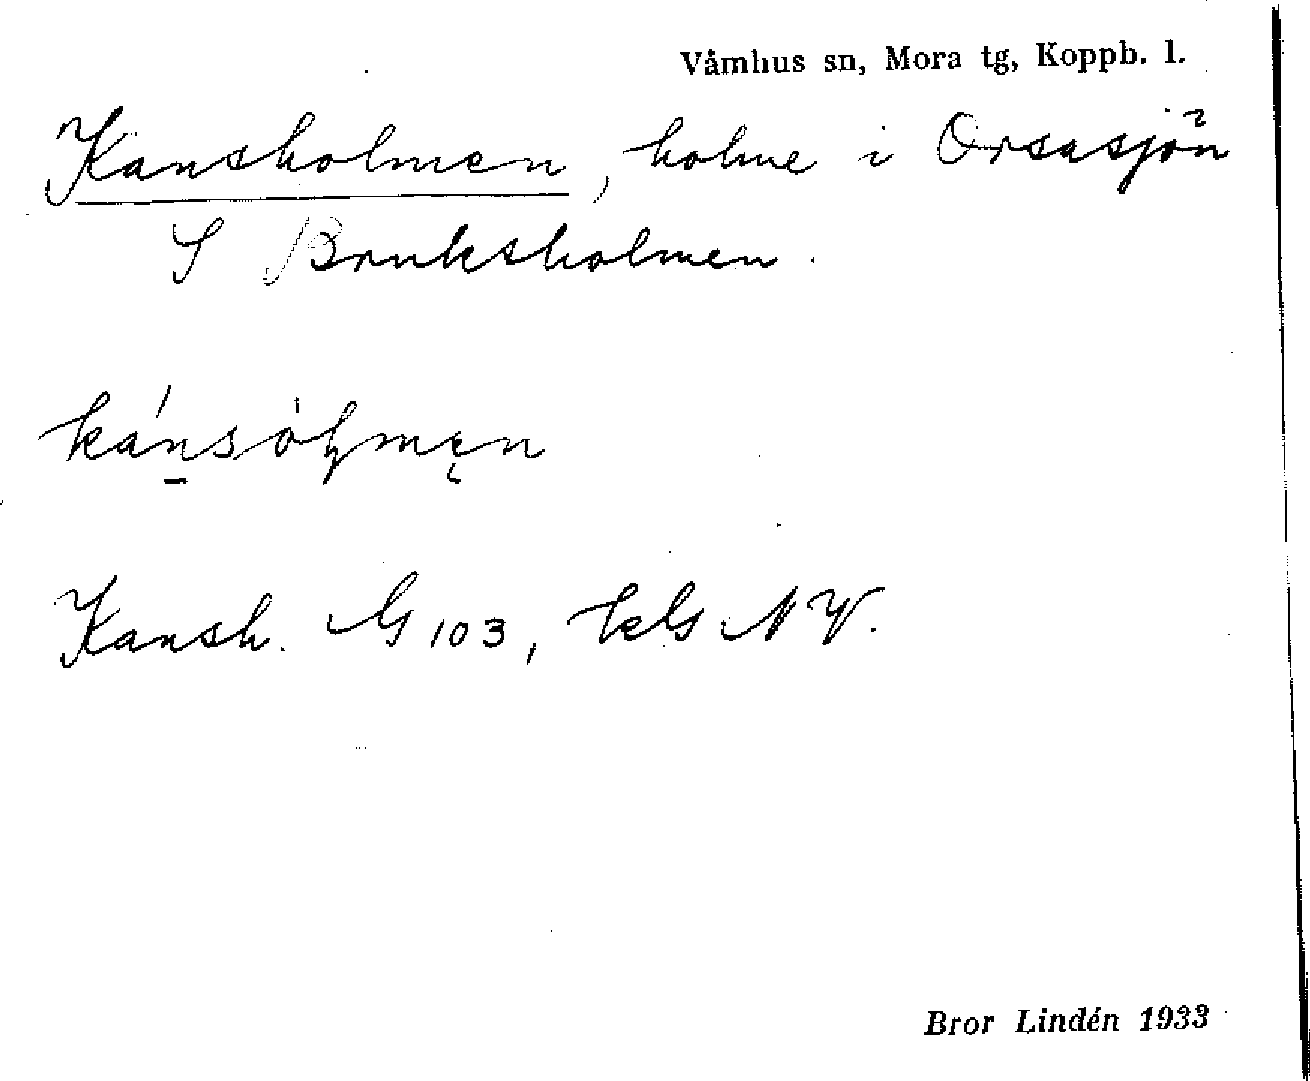 Våmhus sn, Mora tg, Koppb. l.
Kansholmen, holme i Orsasjön
S Bruksholmen.
Kansh. G 103, kbl NV.
Bror Lindén 1933